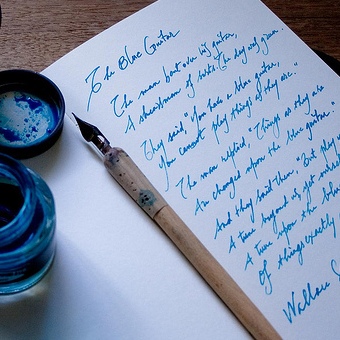 The Blue Guitar
The man bent over his guitar,
A shearsman of sorts. The day was green.
They said, "You have a blue guitar,
You cannot play things as they are."
The man replied, "Things as they are
Are changed upon the blue guitar."
And they said then, "But play
A tune beyond us, yet ourselves
A tune upon the blue
Of things exactly
Wallace